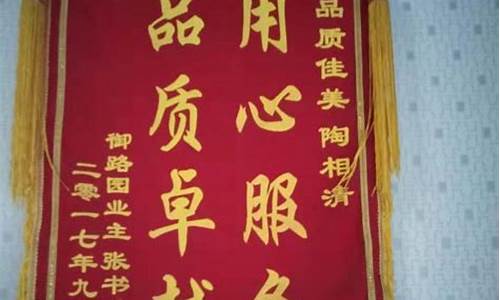 品质佳美 陶相清
用心服务
品质卓越
御路园业主 张书
二零一七年九